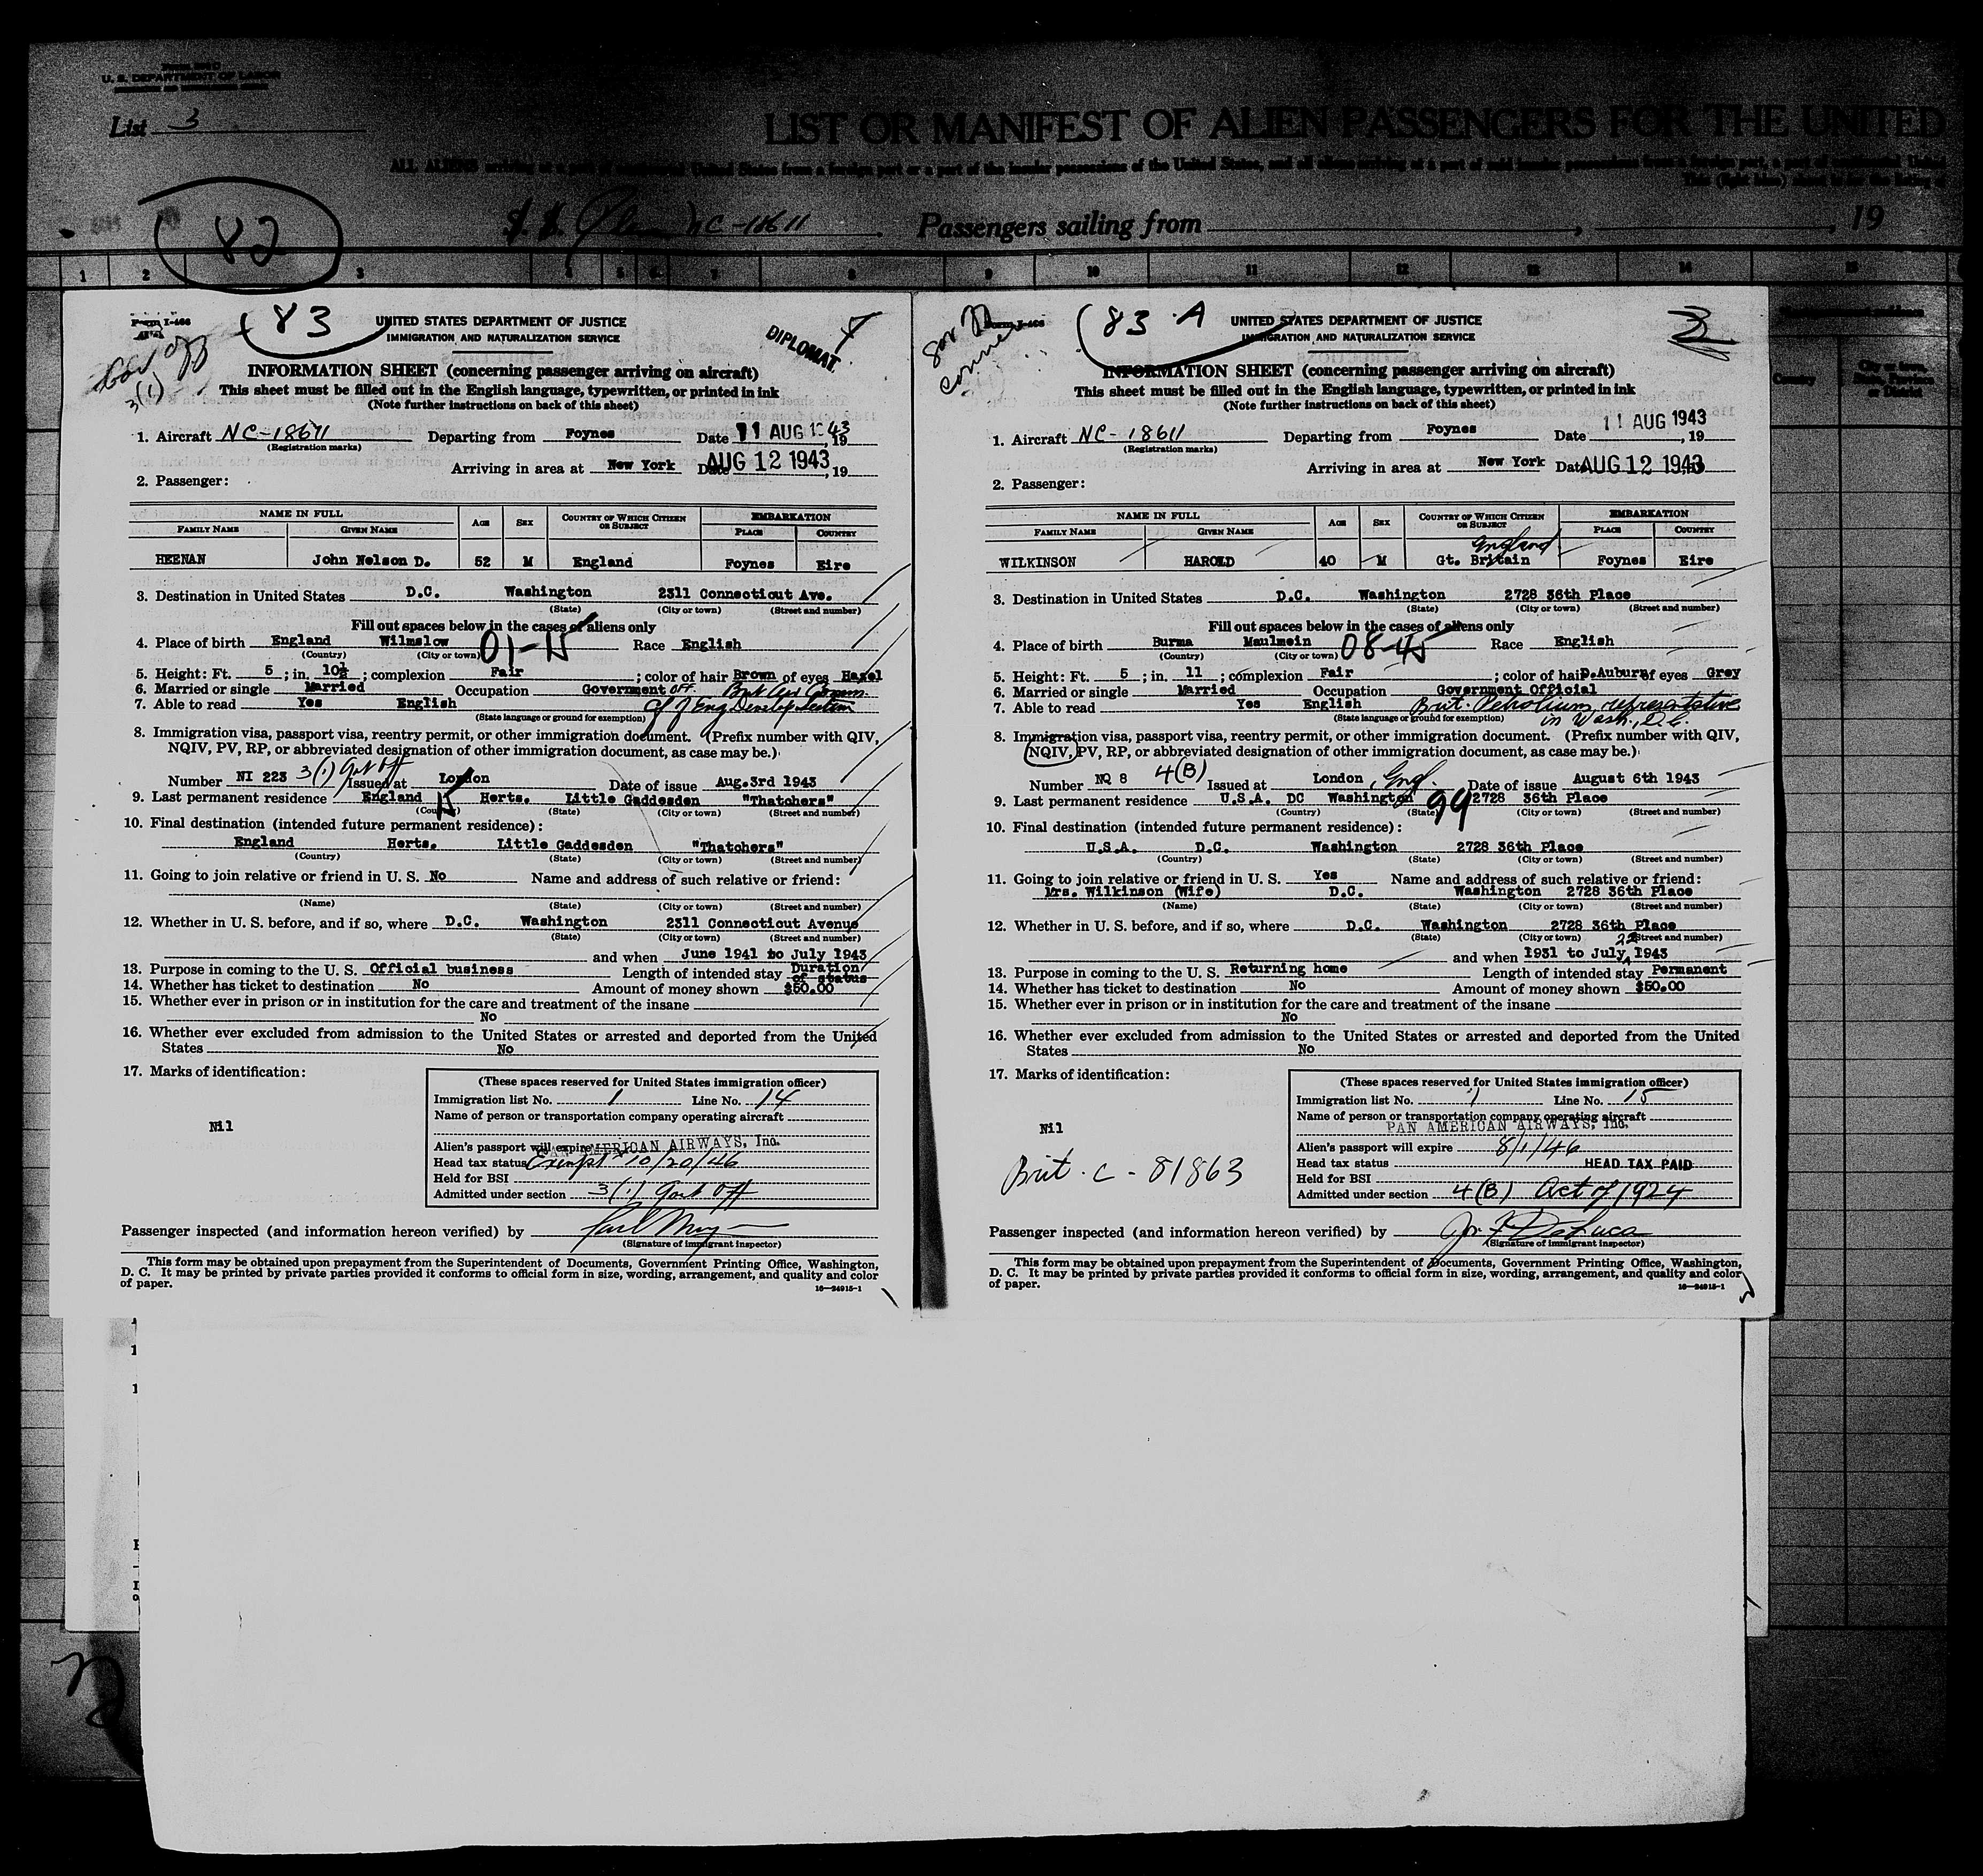 U. S. DEPARTMENT OF LABOR
List 3
LIST OR MANIFEST OF ALIEN PASSENGERS FOR THE UNITED
ALL ALIENS arriving at a port of continental United States from a foreign port or a port of the insular possessions of the United States, and all aliens arriving at a port of said insular possessions from a foreign port, a port of continental United
82
S. S. Plane NC-18611 Passengers sailing from , 19
1 2 3 4 5 6 7 8 9 10 11 12 13 14 15
Form I-466
83
UNITED STATES DEPARTMENT OF JUSTICE
IMMIGRATION AND NATURALIZATION SERVICE
DIPLOMAT
Gov Off
3(1)
INFORMATION SHEET (concerning passenger arriving on aircraft)
This sheet must be filled out in the English language, typewritten, or printed in ink
(Note further instructions on back of this sheet)
1. Aircraft NC-18611 Departing from Foynes Date 11 AUG 1943, 19
(Registration marks)
Arriving in area at New York Date AUG 12 1943, 19
2. Passenger:
NAME IN FULL AGE SEX COUNTRY OF WHICH CITIZEN OR SUBJECT EMBARKATION
FAMILY NAME GIVEN NAME PLACE COUNTRY
HEENAN John Nelson D. 52 M England Foynes Eire
3. Destination in United States D.C. Washington 2311 Connecticut Ave.
(State) (City or town) (Street and number)
Fill out spaces below in the cases of aliens only
4. Place of birth England Wilmslow 01-15 Race English
(Country) (City or town)
5. Height: Ft. 5; in. 10½; complexion Fair; color of hair Brown of eyes Hazel
6. Married or single Married Occupation Government Off. Brit Air Comm.
7. Able to read Yes English Of Eng Develop Section
(State language or ground for exemption)
8. Immigration visa, passport visa, reentry permit, or other immigration document. (Prefix number with QIV,
NQIV, PV, RP, or abbreviated designation of other immigration document, as case may be.)
Number NI 223 3(1) Gov't Off Issued at London Date of issue Aug.3rd 1943
9. Last permanent residence England 15 Herts. Little Gaddesden "Thatchers"
(Country) (State) (City or town) (Street and number)
10. Final destination (intended future permanent residence):
England Herts. Little Gaddesden "Thatchers"
(Country) (State) (City or town) (Street and number)
11. Going to join relative or friend in U. S. No Name and address of such relative or friend:
(Name) (State) (City or town) (Street and number)
12. Whether in U. S. before, and if so, where D.C. Washington 2311 Connecticut Avenue
(State) (City or town) (Street and number)
and when June 1941 to July 1943
13. Purpose in coming to the U. S. Official business Length of intended stay Duration of status
14. Whether has ticket to destination No Amount of money shown $50.00
15. Whether ever in prison or in institution for the care and treatment of the insane
No
16. Whether ever excluded from admission to the United States or arrested and deported from the United
States No
17. Marks of identification:
Nil
(These spaces reserved for United States immigration officer)
Immigration list No. 1 Line No. 14
Name of person or transportation company operating aircraft
PAN AMERICAN AIRWAYS, Inc.
Alien's passport will expire 10/20/46
Head tax status Exempt
Held for BSI
Admitted under section 3(1) Govt Off
Passenger inspected (and information hereon verified) by
(Signature of immigrant inspector)
This form may be obtained upon prepayment from the Superintendent of Documents, Government Printing Office, Washington,
D. C. It may be printed by private parties provided it conforms to official form in size, wording, arrangement, and quality and color
of paper.
16—24915-1
Form I-466
83 A
UNITED STATES DEPARTMENT OF JUSTICE
IMMIGRATION AND NATURALIZATION SERVICE
INFORMATION SHEET (concerning passenger arriving on aircraft)
This sheet must be filled out in the English language, typewritten, or printed in ink
(Note further instructions on back of this sheet)
1. Aircraft NC-18611 Departing from Foynes Date 11 AUG 1943, 19
(Registration marks)
Arriving in area at New York Date AUG 12 1943
2. Passenger:
NAME IN FULL AGE SEX COUNTRY OF WHICH CITIZEN OR SUBJECT EMBARKATION
FAMILY NAME GIVEN NAME PLACE COUNTRY
England
WILKINSON HAROLD 40 M Gt. Britain Foynes Eire
3. Destination in United States D.C. Washington 2728 36th Place
(State) (City or town) (Street and number)
Fill out spaces below in the cases of aliens only
4. Place of birth Burma Maulmein 08-45 Race English
(Country) (City or town)
5. Height: Ft. 5; in. 11; complexion Fair; color of hair D.Auburn of eyes Grey
6. Married or single Married Occupation Government Official
7. Able to read Yes English Brit. Petroleum representative
(State language or ground for exemption) in Wash., D.C.
8. Immigration visa, passport visa, reentry permit, or other immigration document. (Prefix number with QIV,
NQIV, PV, RP, or abbreviated designation of other immigration document, as case may be.)
Number NQ 8 4(B) Issued at London, Eng. Date of issue August 6th 1943
9. Last permanent residence U.S.A. DC Washington 99 2728 36th Place
(Country) (State) (City or town) (Street and number)
10. Final destination (intended future permanent residence):
U.S.A. D.C. Washington 2728 36th Place
(Country) (State) (City or town) (Street and number)
11. Going to join relative or friend in U. S. Yes Name and address of such relative or friend:
Mrs. Wilkinson (Wife) D.C. Washington 2728 36th Place
(Name) (State) (City or town) (Street and number)
12. Whether in U. S. before, and if so, where D.C. Washington 2728 36th Place
(State) (City or town) (Street and number)
and when 1931 to July 22 1943
13. Purpose in coming to the U. S. Returning home Length of intended stay Permanent
14. Whether has ticket to destination No Amount of money shown $50.00
15. Whether ever in prison or in institution for the care and treatment of the insane
No
16. Whether ever excluded from admission to the United States or arrested and deported from the United
States No
17. Marks of identification:
Nil
Brit. C - 81863
(These spaces reserved for United States immigration officer)
Immigration list No. 1 Line No. 15
Name of person or transportation company operating aircraft
PAN AMERICAN AIRWAYS, Inc.
Alien's passport will expire 8/1/46
Head tax status HEAD TAX PAID
Held for BSI
Admitted under section 4(B) Act of 1924
Passenger inspected (and information hereon verified) by
(Signature of immigrant inspector)
This form may be obtained upon prepayment from the Superintendent of Documents, Government Printing Office, Washington,
D. C. It may be printed by private parties provided it conforms to official form in size, wording, arrangement, and quality and color
of paper.
16—24915-1